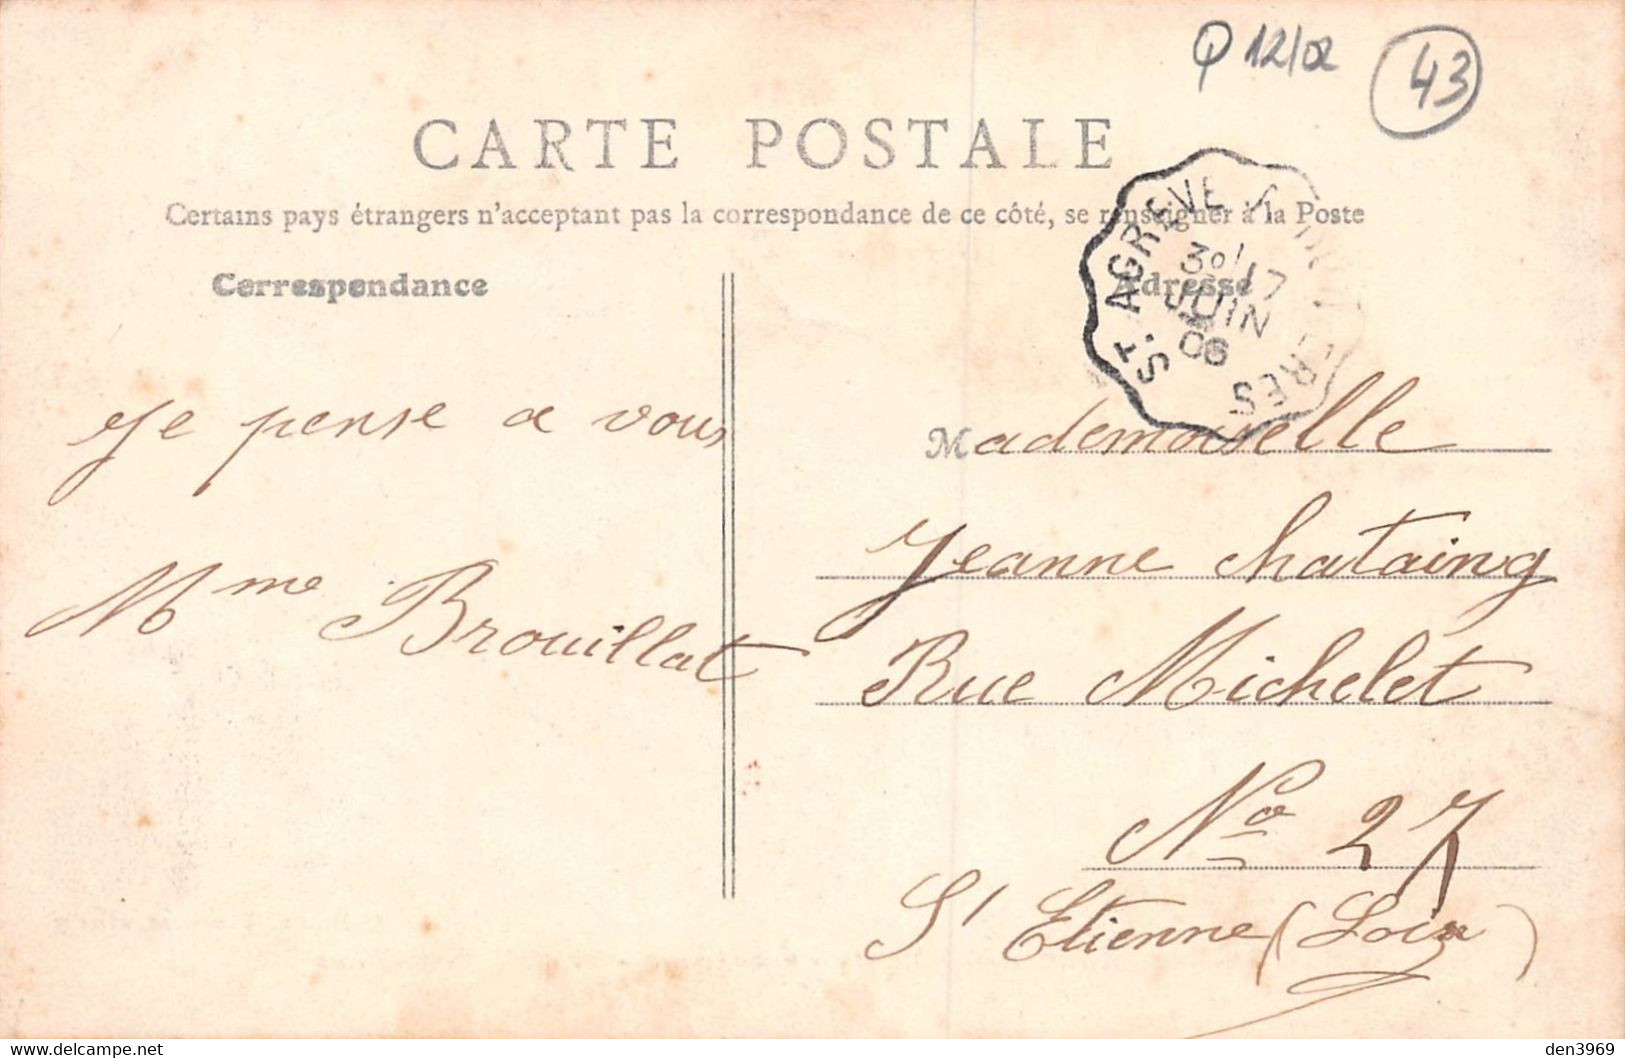 12/02
43
CARTE POSTALE
Certains pays étrangers n'acceptant pas la correspondance de ce côté, se renseigner à la Poste
Correspondance
Adresse
ST AGRÈVE
JUIN
06
Je pense a vous
Mme Brouillat
Mademoiselle
Jeanne Chataing
Rue Michelet
No 27
St Etienne (Loire)
den3969